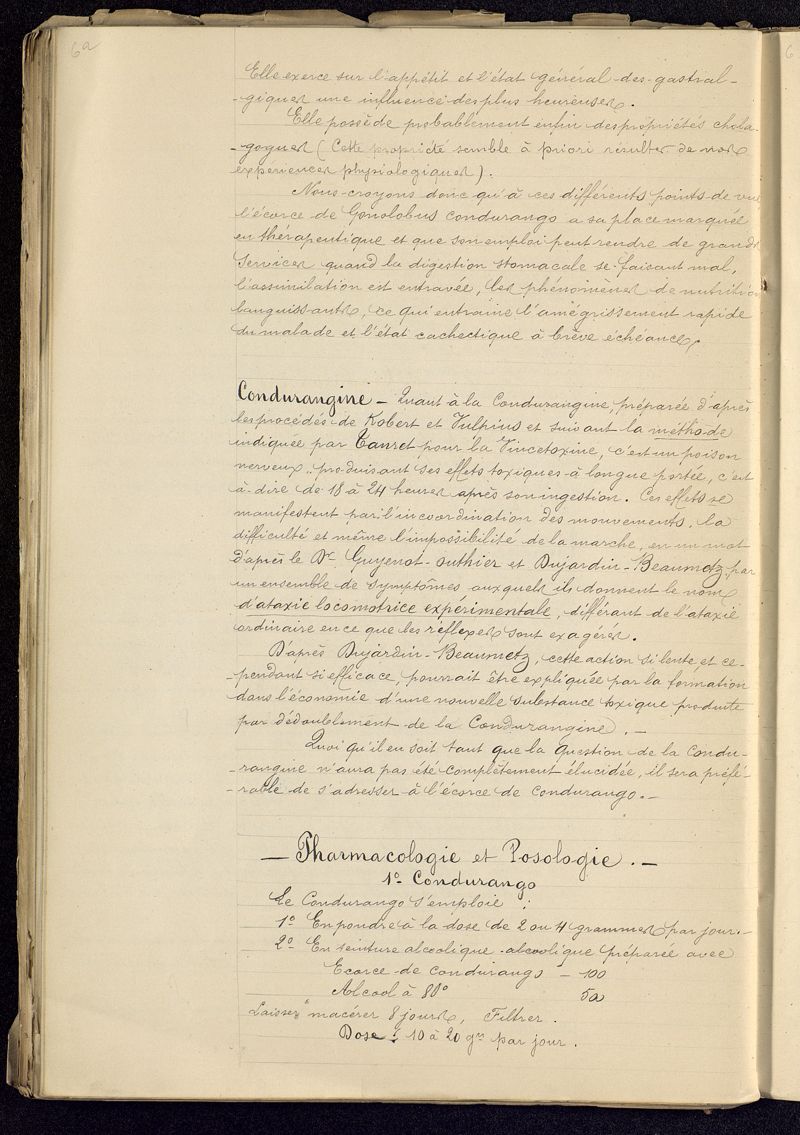 62
Elle exerce sur l'appétit et l'état général des gastral-
-giques une influence des plus heureuses.
Elle possède probablement enfin des propriétés chola-
-gogues (Cette propriété semble à priori résulter de nos
expériences physiologiques).
Nous croyons donc qu'à ces différents points de vue
l'écorce de Gonolobus Condurango a sa place marquée
en thérapeutique et que son emploi peut rendre de grands
services quand la digestion stomacale se faisant mal,
l'assimilation est entravée, les phénomènes de nutrition
languissants, ce qui entraine l'amégrissement rapide
du malade et l'état cachectique à brève échéance.
Condurangine - Quant à la Condurangine, préparée d'après
les procédés de Kobert et Vulpius et suivant la méthode
indiquée par Tanret pour la Vincetoxine, c'est un poison
nerveux produisant ses effets toxiques à longue portée, c'est
à-dire de 18 à 24 heures après son ingestion. Ces effets se
manifestent par l'incoordination des mouvements, la
difficulté et même l'impossibilité de la marche, en un mot
d'après le Dr Guyenot-outhier et Dujardin-Beaumetz, par
un ensemble de symptômes auxquels ils donnent le nom
d'ataxie locomotrice expérimentale, différant de l'ataxie
ordinaire en ce que les réflexes sont exagérés.
D'après Dujardin-Beaumetz, cette action si lente et ce-
-pendant si efficace, pourrait être expliquée par la formation
dans l'économie d'une nouvelle substance toxique produite
par dédoublement de la Condurangine. -
Quoi qu'il en soit tant que la question de la Condu-
-rangine n'aura pas été complètement élucidée, il sera préfé-
-rable de s'adresser à l'écorce de Condurango. -
- Pharmacologie et Posologie. -
1º Condurango
Le Condurango s'emploie :
1º En poudre à la dose de 2 ou 4 grammes par jour. -
2º En teinture alcoolique alcoolique préparée avec
Ecorce de Condurango - 100
Alcool à 80º 50
Laisser macérer 8 jours, Filtrer.
Dose : 10 à 20 grs par jour.